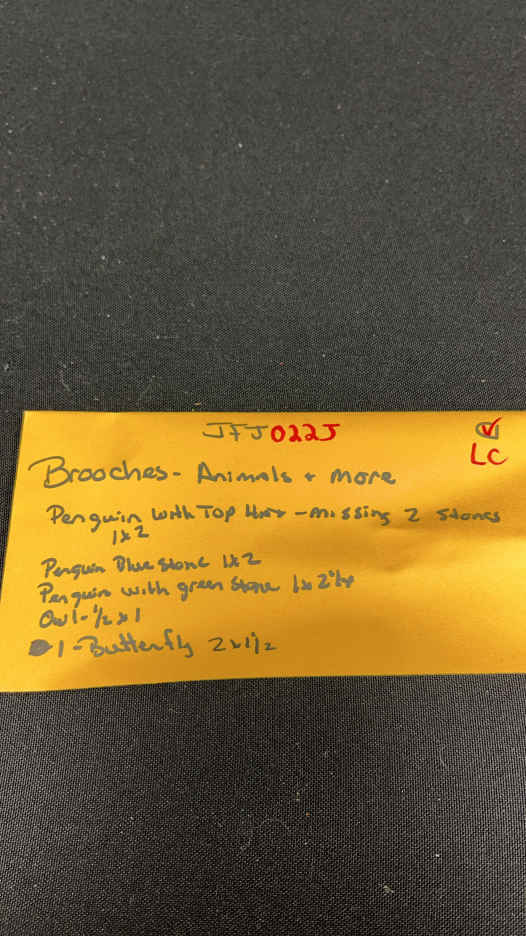 JFJ022J
LC
Brooches - Animals + more
Penguin with Top Hat - missing 2 stones
1x2
Penguin Blue stone 1x2
Penguin with green stone 1x2
Owl - 1/2 x 1
1 - Butterfly 2x1 1/2